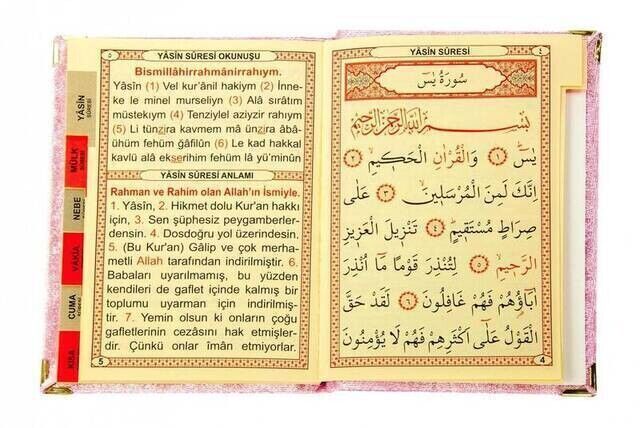 ٥
YÂSİN SÛRESİ OKUNUŞU
Bismillâhirrahmânirrahıym.
Yâsîn (1) Vel kur'ânil hakiym (2) İnne-
ke le minel murseliyn (3) Alâ sırâtım
müstekıym (4) Tenziylel aziyzir rahıym
(5) Li tünzira kavmem mâ ünzira âbâ-
ühüm fehüm gâfilûn (6) Le kad hakkal
kavlü alâ ekserihim fehüm lâ yü'minûn
YÂSİN SÛRESİ ANLAMI
Rahman ve Rahim olan Allah'ın İsmiyle.
1. Yâsîn, 2. Hikmet dolu Kur'an hakkı
için, 3. Sen şüphesiz peygamberler-
densin. 4. Dosdoğru yol üzerindesin.
5. (Bu Kur'an) Gâlip ve çok merha-
metli Allah tarafından indirilmiştir. 6.
Babaları uyarılmamış, bu yüzden
kendileri de gaflet içinde kalmış bir
toplumu uyarman için indirilmiş-
tir. 7. Yemin olsun ki onların çoğu
gafletlerinin cezasını hak etmişler-
dir. Çünkü onlar îmân etmiyorlar.
5
YÂSİN
SÛRESİ
MÜLK
SÛRESİ
NEBE
VÂKIA
CUMA
KISA
YÂSİN SÛRESİ
٤
سُورَةُ يٰسٓ
بِسْمِ اللّٰهِ الرَّحْمٰنِ الرَّحِيمِ
يٰسٓ ﴿١﴾ وَالْقُرْاٰنِ الْحَكِيمِ ﴿٢﴾
اِنَّكَ لَمِنَ الْمُرْسَلِينَ ﴿٣﴾ عَلٰى
صِرَاطٍ مُسْتَقِيمٍ ﴿٤﴾ تَنْزِيلَ الْعَزِيزِ
الرَّحِيمِ ﴿٥﴾ لِتُنْذِرَ قَوْمًا مَٓا اُنْذِرَ
اٰبَٓاؤُهُمْ فَهُمْ غَافِلُونَ ﴿٦﴾ لَقَدْ حَقَّ
الْقَوْلُ عَلٰٓى اَكْثَرِهِمْ فَهُمْ لَا يُؤْمِنُونَ
4